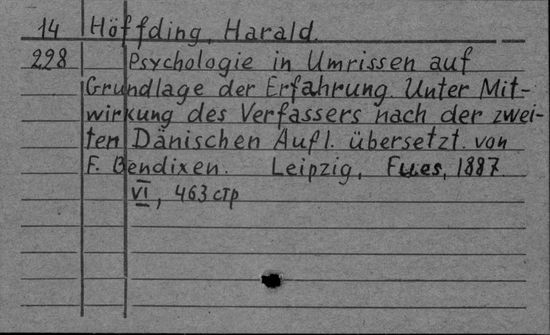 14 Höffding, Harald.
228 Psychologie in Umrissen auf
Grundlage der Erfahrung. Unter Mit-
wirkung des Verfassers nach der zwei-
ten Dänischen Aufl. übersetzt. von
F. Bendixen. Leipzig, Fues, 1887.
VI, 463 стр